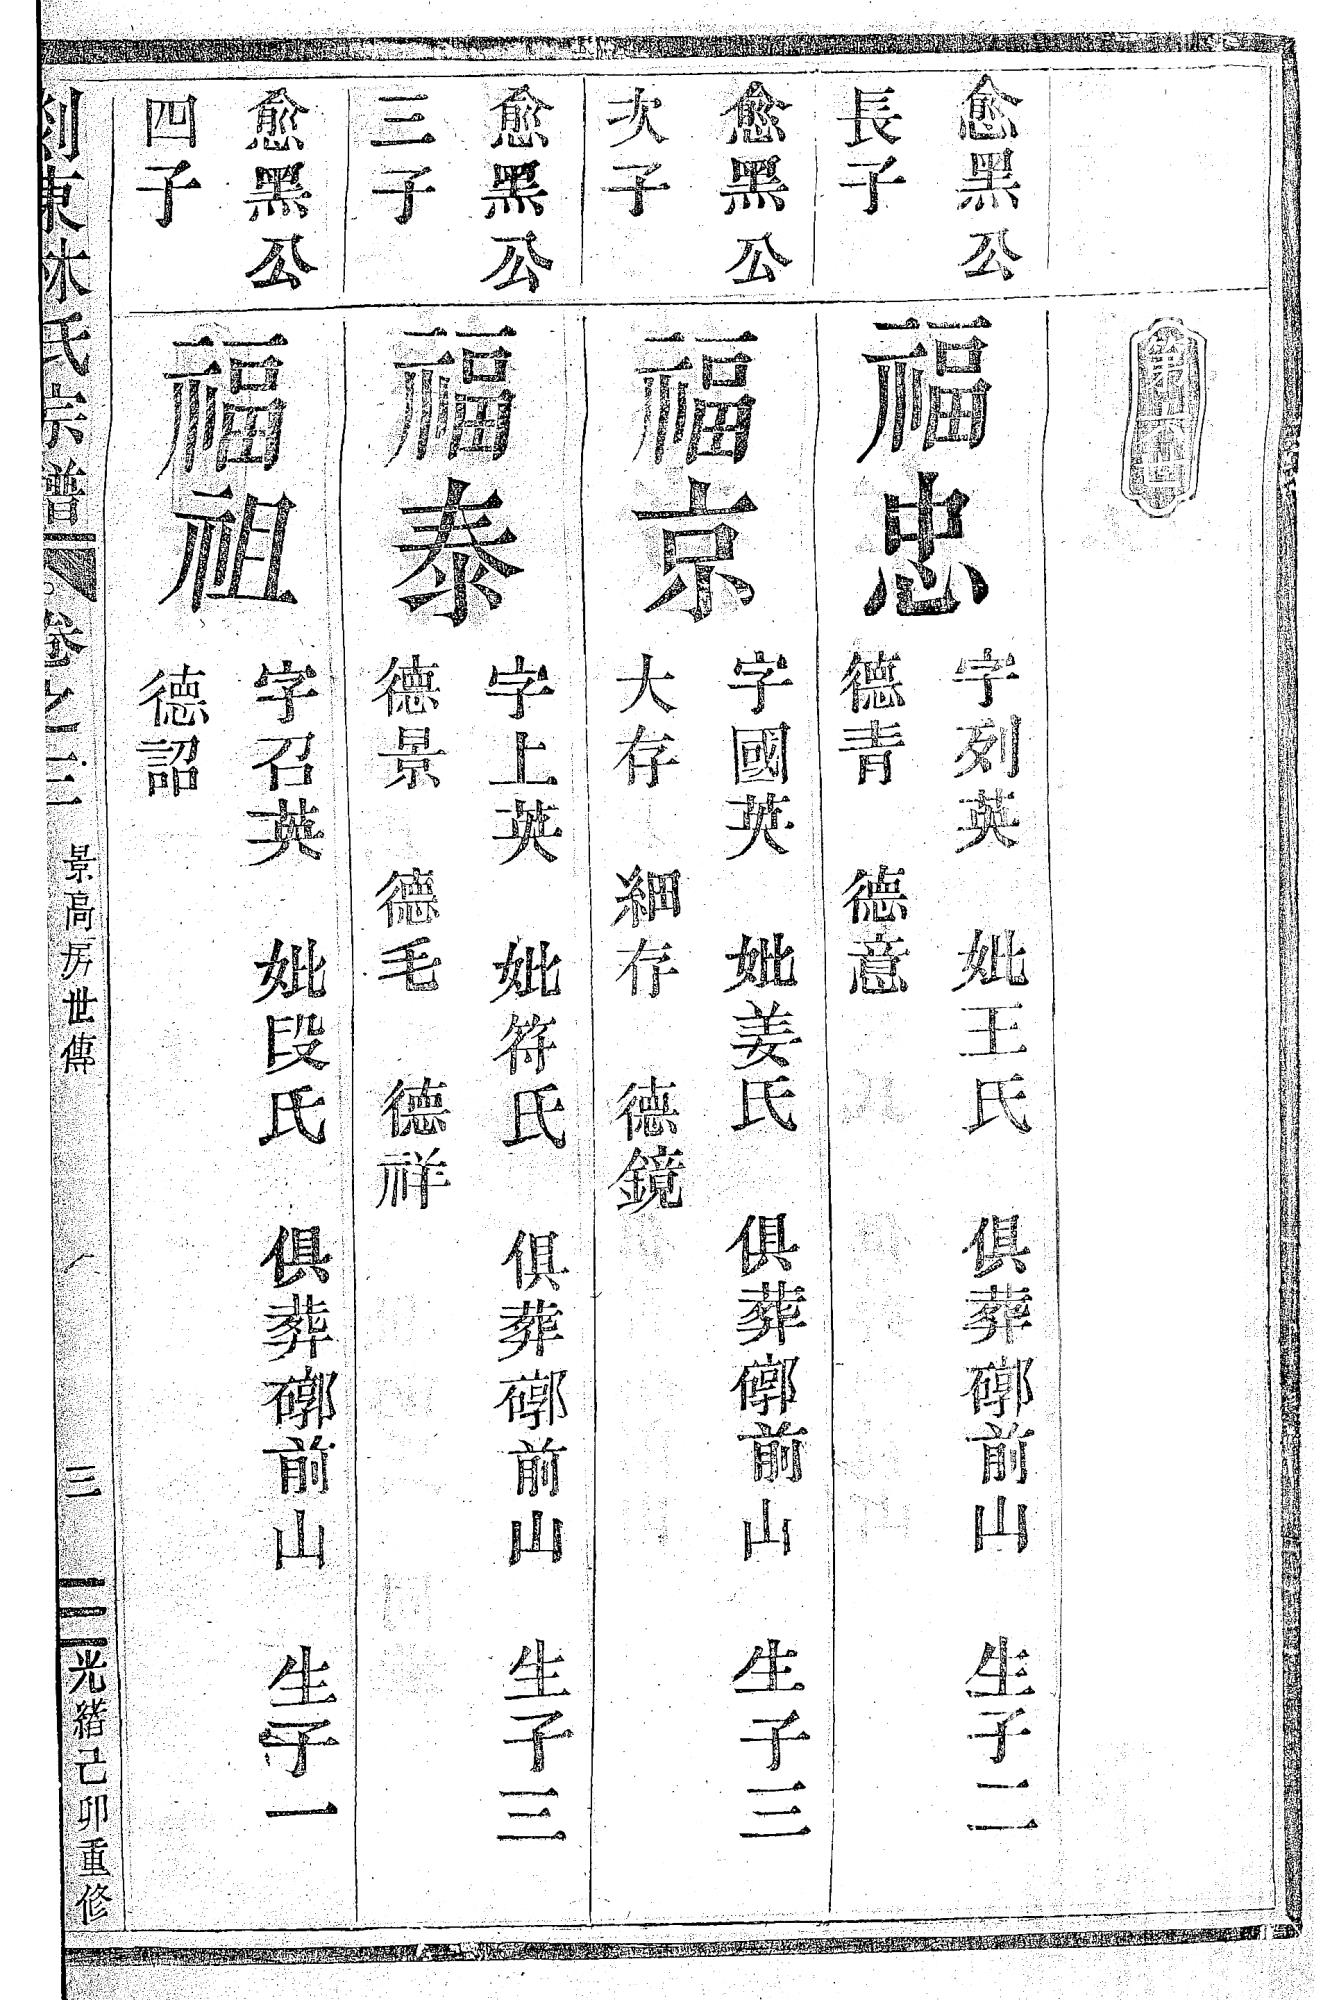 第六世
愈黑公
長子
福忠
字列英　妣王氏　俱葬𥕏前山　生子二
德青　德意
愈黑公
次子
福京
字國英　妣姜氏　俱葬𥕏前山　生子三
大存　細存　德鏡
愈黑公
三子
福泰
字上英　妣符氏　俱葬𥕏前山　生子三
德景　德毛　德祥
愈黑公
四子
福祖
字召英　妣段氏　俱葬𥕏前山　生子一
德詔
東林氏宗譜　卷之三　景高房世傳　三　光緒己卯重修